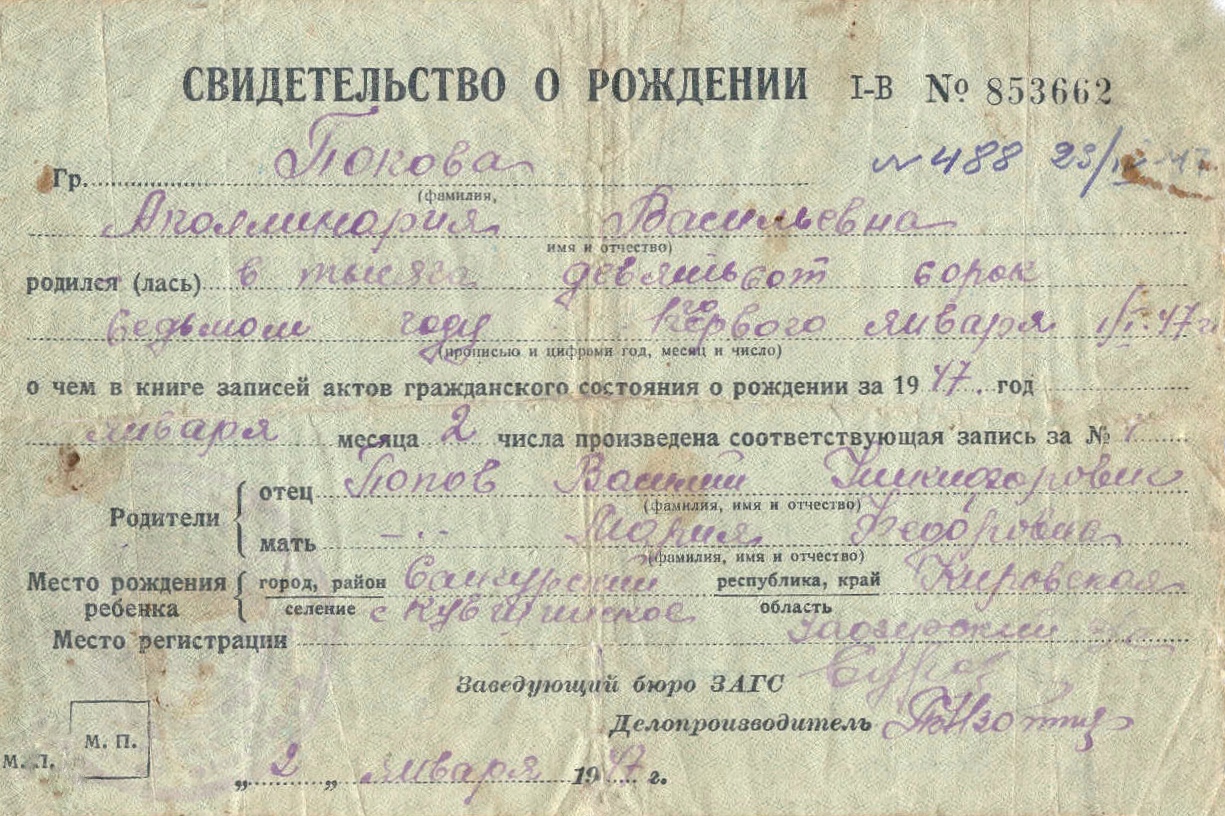 СВИДЕТЕЛЬСТВО О РОЖДЕНИИ I-В № 853662
Гр. Попова № 488 23/
(фамилия,
Аполлинария Васильевна
имя и отчество)
родился (лась) в тысяча девятьсот сорок
седьмом году 1го Первого января 1/I-47 г
(прописью и цифрами год, месяц и число)
о чем в книге записей актов гражданского состояния о рождении за 19 47. год
января месяца 2 числа произведена соответствующая запись за №
Родители
отец Попов Василий Никифорович
(фамилия, имя и отчество)
мать —··— Мария Федоровна
(фамилия, имя и отчество)
Место рождения ребенка
город, район Санчурский республика, край Кировская
селение с область
Место регистрации
Заведующий бюро ЗАГС
Делопроизводитель
М. П.
М. П.
„ 2 „ января 19 47 г.